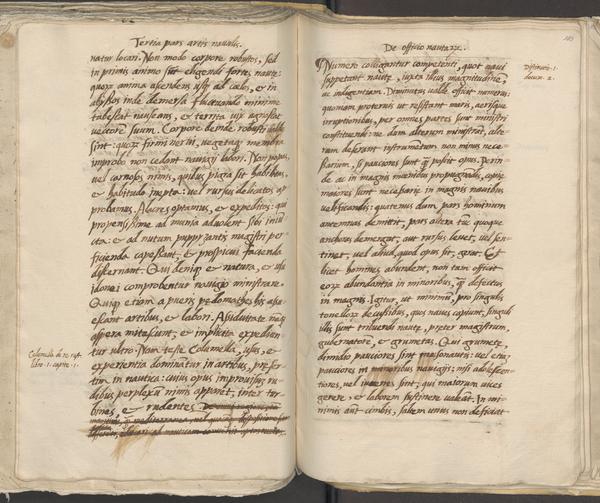 Tertia pars artis naualis.
natur locari. Non modo corpore robustos, sed
in primis animo sūt eligendi fortes nautæ:
quorū anima ascendens usq ad cælos, et in
abyssos inde demersa fluctuando minime
tabescat nauseans, et territa uix agnoscat
uectore suum. Corpore deinde robusti ualde
sint: quorū firmi nerui, uegetaq membra
improbo non cedant nauigij labori. Non
uel carnosos nimis, quibus pigra sit habitudo,
et habitudo inepta: uel rursus delicatos
probamus. Alacres optamus, et expeditos: qui
propensissime ad munia aduolent sibi iniū
cta: et ad nutum puppizantis magistri per-
ficiendo capessant, et prospicui facienda
discernant. Qui deniq et natura, et usu
idonei comprobentur nauigio ministrare.
Quiq etiam a pueris
escant artibus, et labori. Assiduitate
aspera mitescunt, et implicita expedian-
tur ultro. Nam teste Columella, usus, et
experientia dominātur in artibus, præser-
tim in nautica: cuius opus improuisū ru-
dibus perplexū nimis apparet, inter tur-
bines, et rudentes
Columella de re rust.
libro .1. capite .1.
De officio nautarū.
185
Numero colligantur competenti, quot naui
suppetant nautæ, iuxta illius magnitudinē,
ac indigentiam. Diminutus ualde officit numerus:
quoniam poterunt ut resistant maris, aerisque
irruptionibus, per omnes partes sunt ministri
constituendi: ne dum alterum ministrat, alte-
ram deserant instrumētum non minus nece-
ssarium, si pauciores sunt q possit opus. Perin-
de ac in magnis mœnibus propugnādis, copiæ
maiores sunt necessariæ in magnis nauibus
uelificandis: quatenus dum pars hominum
antemnas demittit, pars altera tūc quoque
anchoras demergat, aut rursus leuet, uel sen-
tinet, uel aliud, quod opus sit, gerat. Et
licet homines abundent, non tam officit
eorū abundantia in minoribus, q defectus
in magnis. Igitur, ut minimū, pro singulis
tonellorū decussibus, quos naues capiunt, singuli
illis sunt tribuendi nautæ, præter magistrum,
gubernatore, et grumetas. Qui grumetæ,
dimidio pauciores sint mesonautis: uel etiā
pauciores in minoribus nauigijs: nisi adolescen-
tiores, uel iuuenes sint, qui maiorum uices
gerere, et laborem sustinere ualeāt. In mi-
nimis aūt cimbis, saltem unus non deficiat